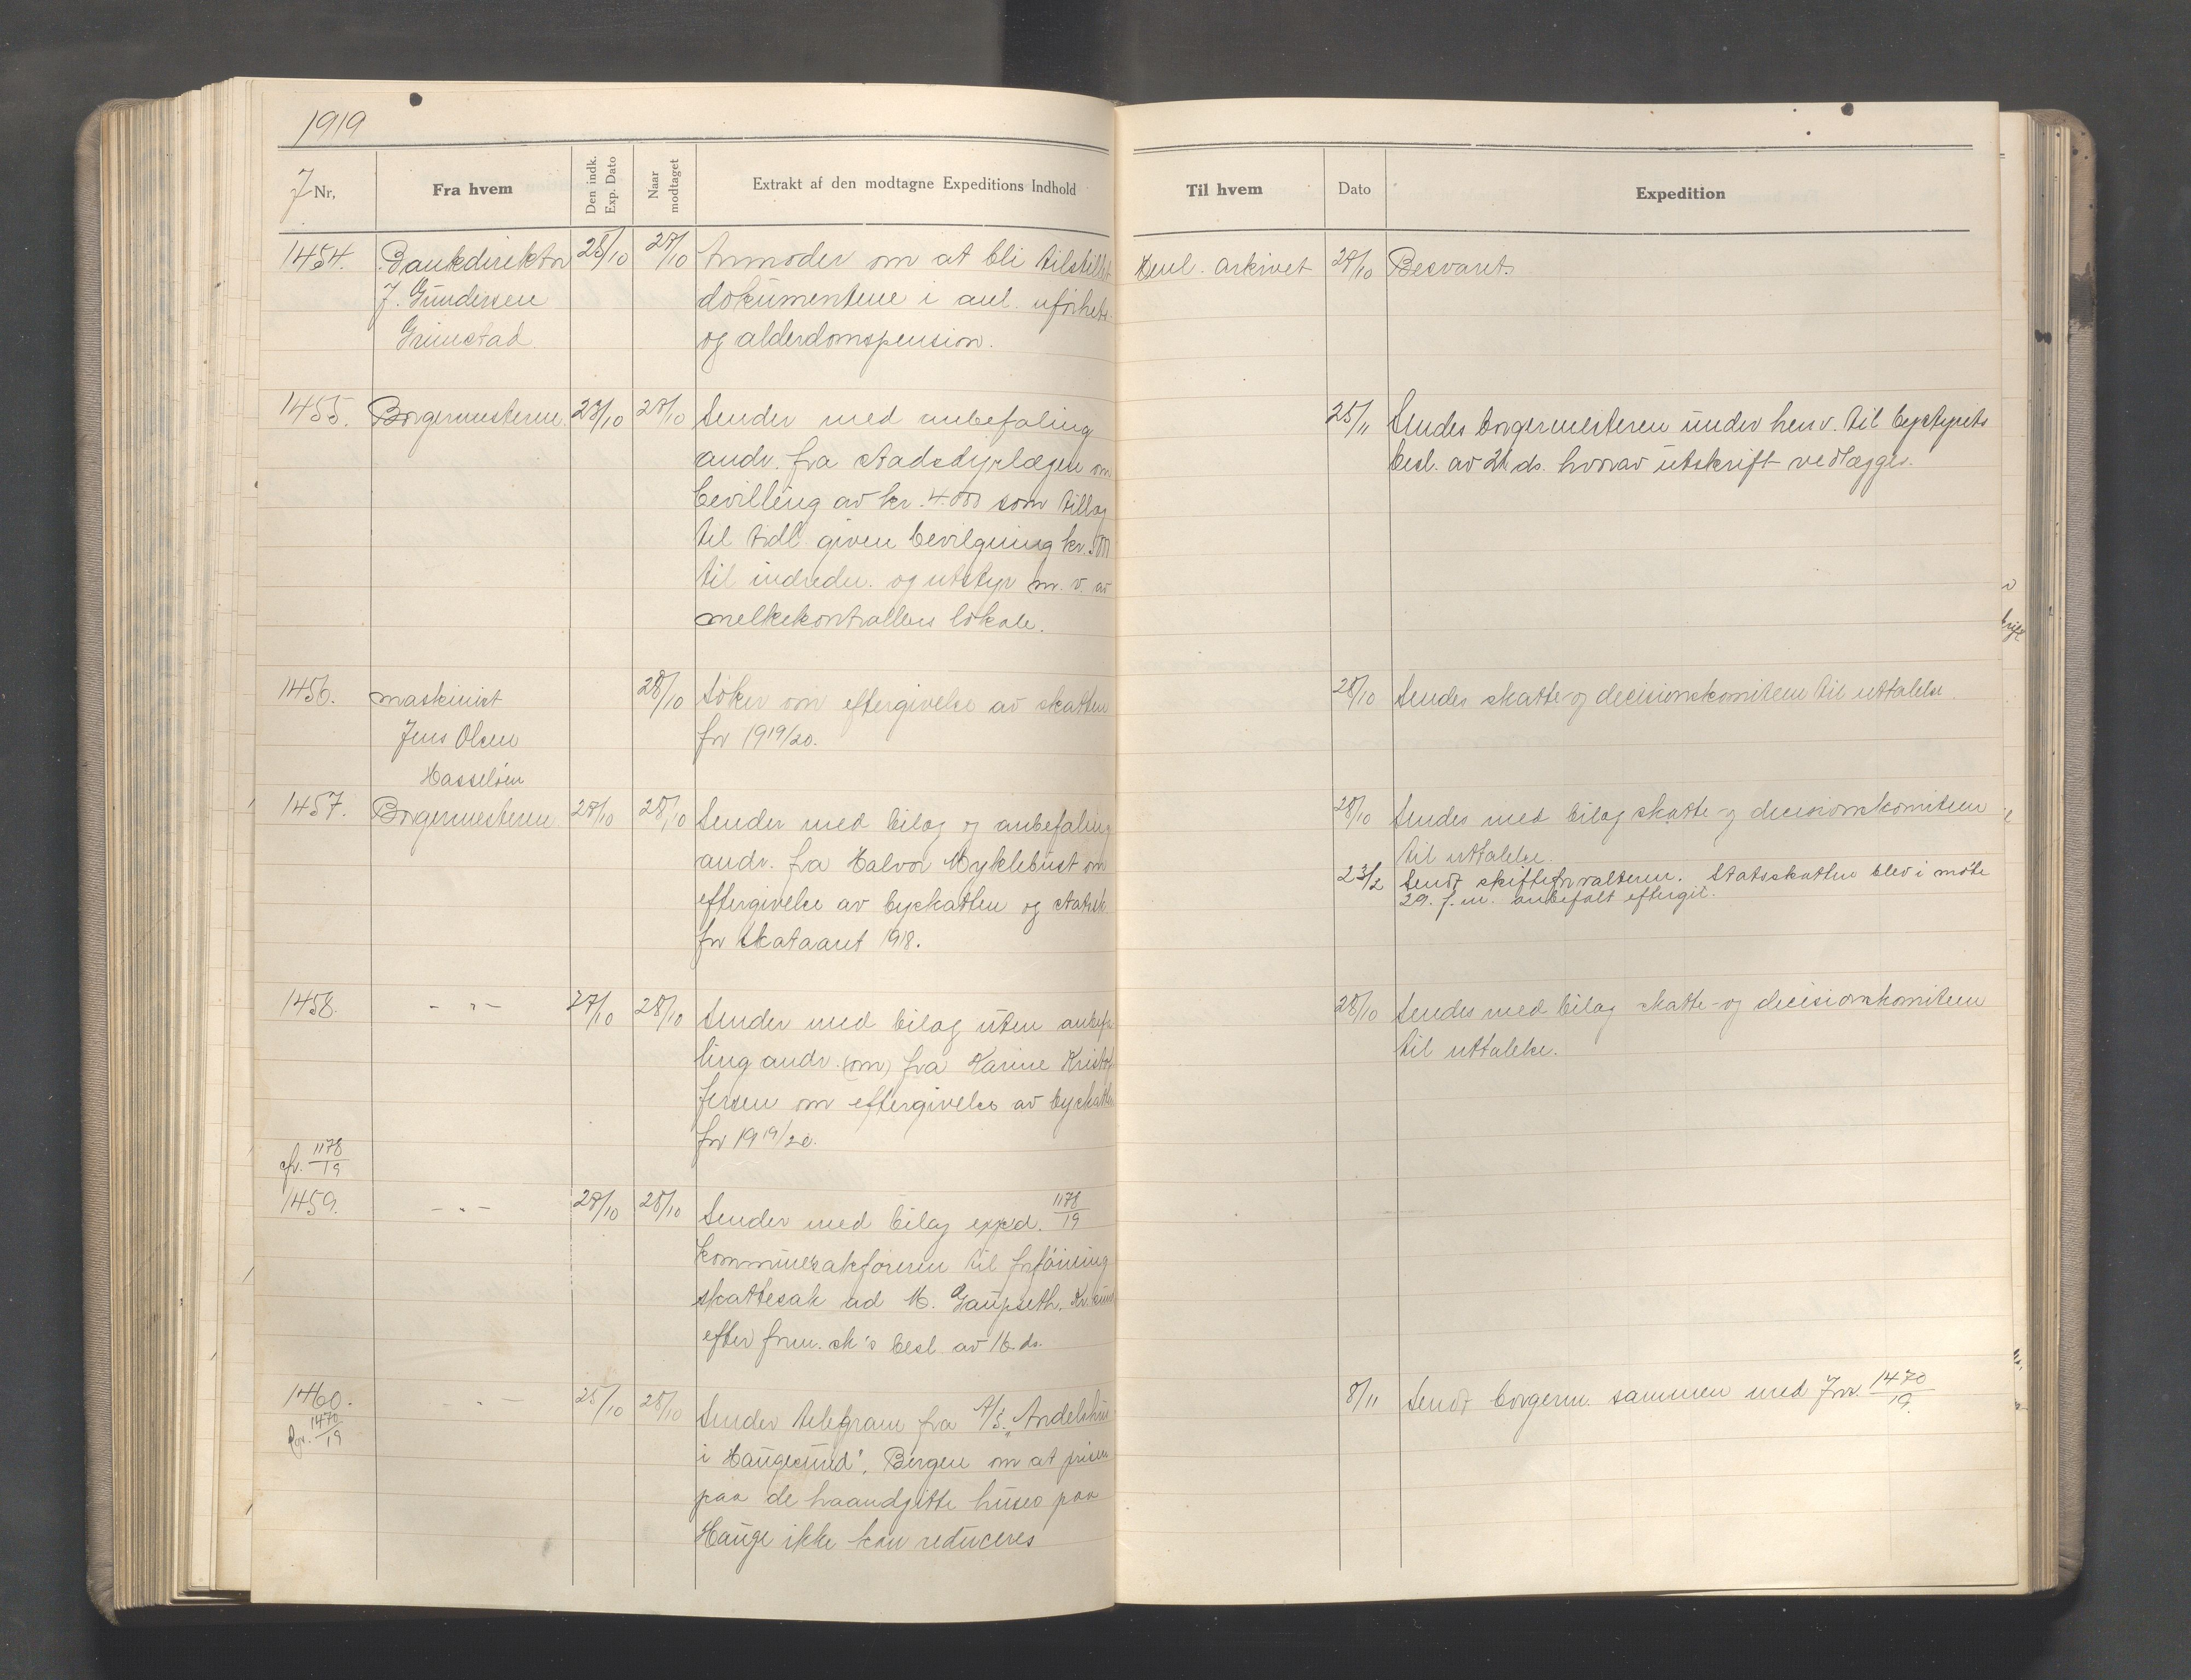 1919
J Nr,
Fra hvem
Den indk. Exp. Dato
Naar modtaget
Extrakt af den modtagne Expeditions Indhold
Til hvem
Dato
Expedition
1454.
Bankdirektør
J. Gundersen
Grimstad.
25/10
27/10
Anmoder om at bli tilstillet
dokumentene i anl. uførhets-
og alderdomspension.
Henl. arkivet
29/10
Besvart.
1455.
Borgermesteren
28/10
28/10
Sender med anbefaling
andr. fra stadsdyrlægen om
bevilling av kr. 4.000 som tillæg
til tidl given bevilgning kr.
til indredn. og utstyr m. v. av
melkekontrollens lokale.
25/11
Sendes borgermesteren under henv. til bystyrets
besl. av 21 ds. hvorav utskrift vedlægges.
1456.
Maskinist
Jens Olsen
Hasseløen
28/10
Søker om eftergivelse av skatten
for 1919/20.
28/10
Sendes skatte- og decisionskomiteen til uttalelse.
1457.
Borgermesteren
28/10
Sender med bilag og anbefaling
andr. fra Halvor Myklebust om
eftergivelse av byskatten og statssk.
for skataaret 1918.
28/10
Sendes med bilag skatte- og decisionskomiteen
til uttalelse.
23/2
Sendt skifteforvalteren. Statsskatten blev i møte
29. f. m. anbefalt eftergit.
1458.
- " -
27/10
28/10
Sender med bilag uten anbefa-
ling andr. (om) fra Karine Kristof-
fersen om eftergivelse av byskatten
for 1919/20.
28/10
Sendes med bilag skatte- og decisionskomiteen
til uttalelse.
cfr. 1178/19
1459.
- " -
28/10
Sender med bilag exped. 1178/19
kommunesakføreren til forføining
skattesak ad M. Gaupseth, Kr.sund
efter form.sk's besl av 16 ds.
1460.
cfr. 1470/19
- " -
25/10
28/10
Sender telegram fra A/S. „Andelshus
i Haugesund", Bergen om at prisen
paa de haandgitte huses paa
Hauge ikke kan reduceres
8/11
Sendt borgerm. sammen med Jnr. 1470/19.